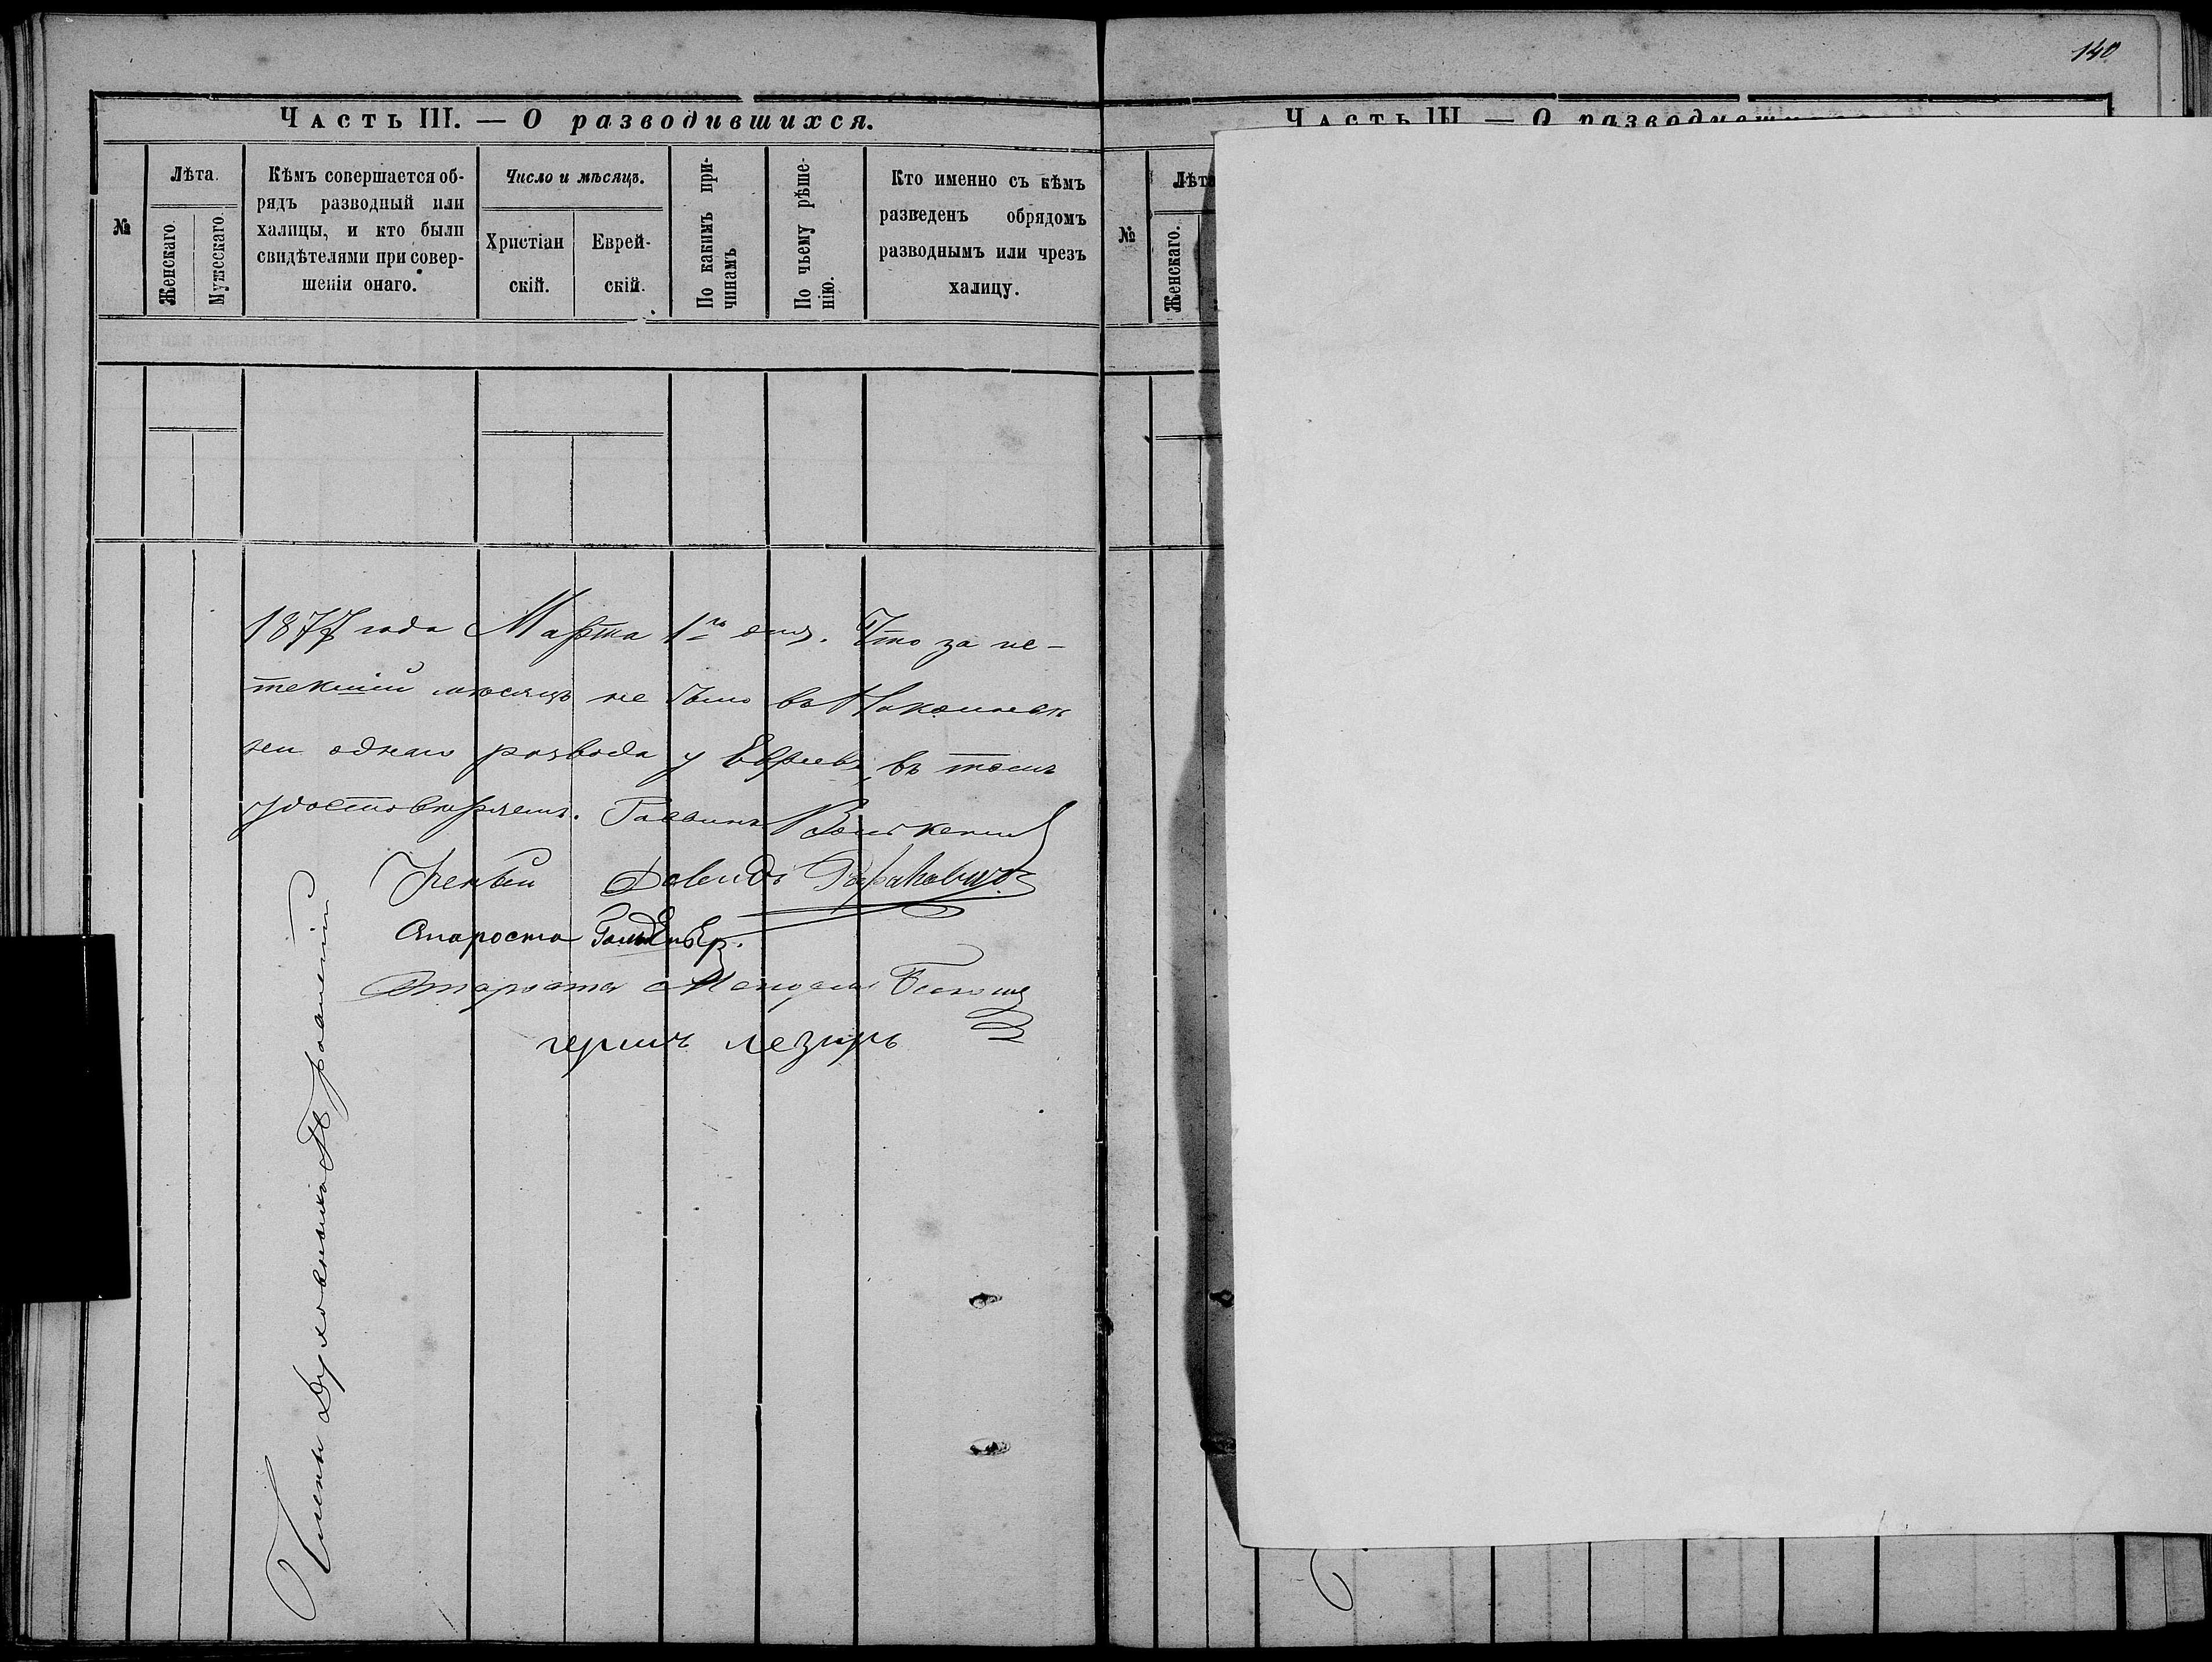 140
Часть III. — О разводившихся.
№
Лѣта.
Женскаго.
Мужескаго.
Кѣмъ совершается об-
рядъ разводный или
халицы, и кто были
свидѣтелями при совер-
шеніи онаго.
Число и мѣсяцъ.
Христіан
скій.
Еврей-
скій.
По какимъ при-
чинамъ
По чьему рѣше-
нію.
Кто именно съ кѣмъ
разведенъ обрядомъ
разводнымъ или чрезъ
халицу.
1877 года Марта 1го дня. Что за ис-
текшій мѣсяцъ не было въ
ни одного развода у Евреевъ, въ томъ
удостовѣряемъ. Раввинъ
Ученый Давидъ
Староста
Староста Мендель
гершъ лезиръ
Члены Духовнаго Правленія
Часть III — О
№
Лѣта
Женскаго.